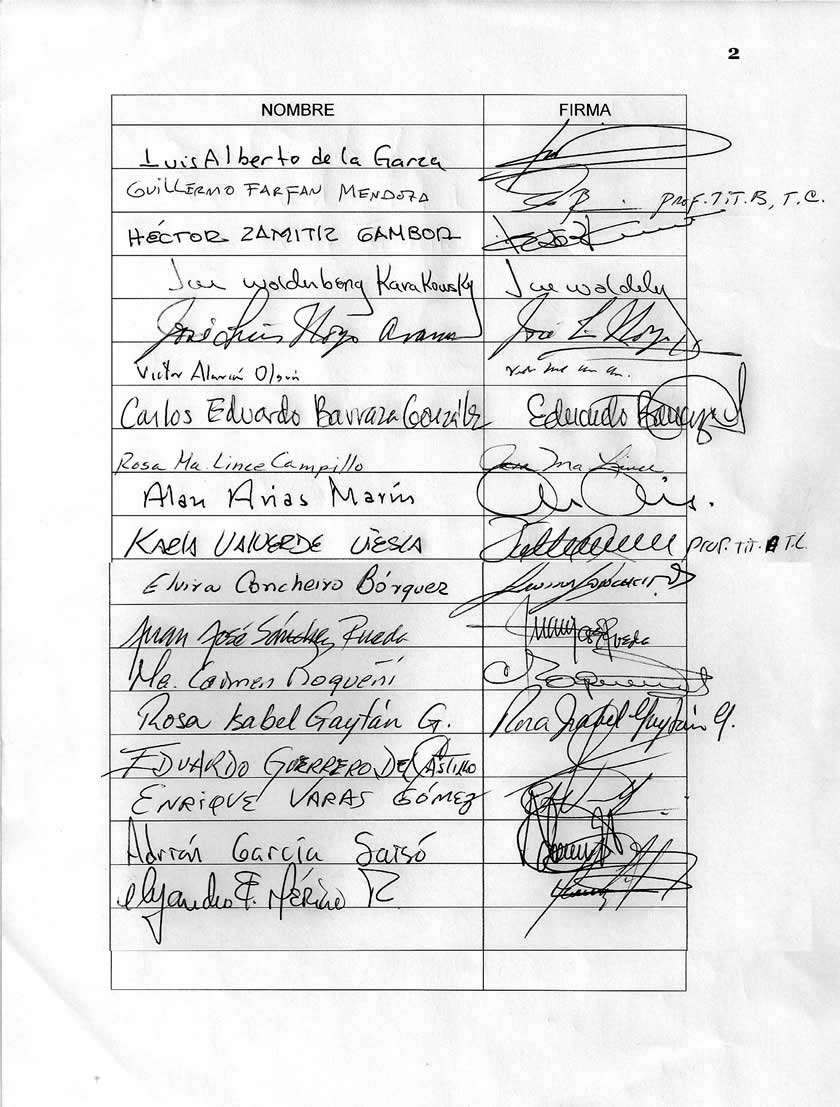 2
NOMBRE FIRMA
Luis Alberto de la Garza
GUILLERMO FARFAN MENDOZA PROF. TIT. B, T.C.
HÉCTOR ZAMITIZ GAMBOA
José Woldenberg Karakowsky José Woldenberg
José Luis Hoyo Arana José L Hoyo
Victor Alarcón Olguín
Carlos Eduardo Barraza González Eduardo Barraza
Rosa Ma. Lince Campillo Rosa Ma Lince
Alan Arias Marín
KARLA VALVERDE VIESCA PROF. TIT. A T.C.
Elvira Concheiro Bórquez
Juan José Sánchez Rueda
Ma. Carmen Roqueñí
Rosa Isabel Gaytán G. Rosa Isabel Gaytán G.
EDUARDO GUERRERO DEL CASTILLO
ENRIQUE VARAS GÓMEZ
Adrián García Saisó
Alejandro F. Mérino R